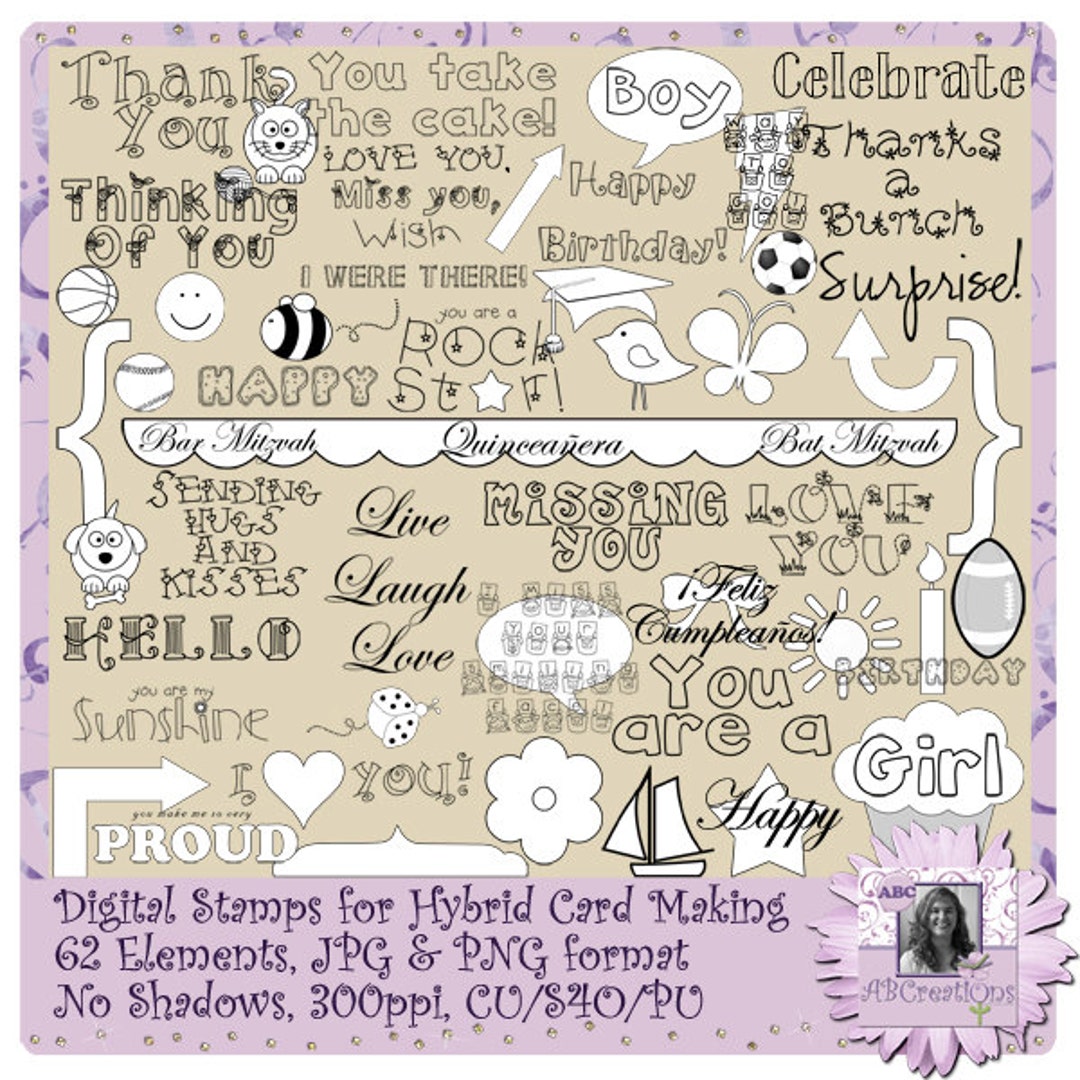 Thank
You
You take
the cake!
LOVE YOU,
Miss you,
Wish
I WERE THERE!
Boy
Celebrate
WAY
TO
GO!
Thanks
a
Bunch
Thinking
Of You
Happy
Birthday!
Surprise!
you are a
Rock
Star!
HAPPY
Bar Mitzvah Quinceañera Bat Mitzvah
SENDING
HUGS
AND
KISSES
Live
Laugh
Love
MISSING
YOU
LOVE
YOU
I MISS
YOUR
SMILING
FACE!
¡Feliz
Cumpleaños!
BIRTHDAY
HELLO
You
are a
you are my
Sunshine
Girl
I YOU!
Happy
you make me so very
PROUD
Digital Stamps for Hybrid Card Making
62 Elements, JPG & PNG format
No Shadows, 300ppi, CU/S4O/PU
ABC
ABCreations